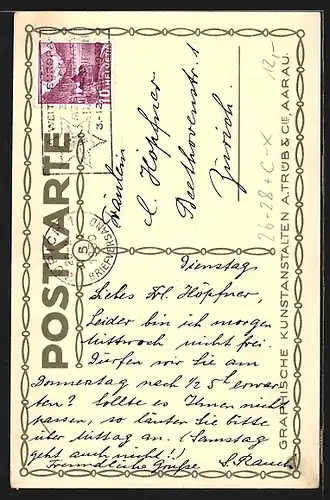 POSTKARTE
HELVETIA
10
12,-
26-28 + C-X
Fräulein
C. Höpfner
Beethovenstr. 1
Zürich.
BRIEFVERSAND
5
Dienstag
Liebes Frl. Höpfner,
Leider bin ich morgen
Mittwoch nicht frei.
Dürfen wir Sie am
Donnerstag nach 1/2 5h erwar-
ten? Sollte es Ihnen nicht
passen, so läuten Sie bitte
über Mittag an. (Samstag
geht auch nicht!)
Freundliche Grüße S. Rauch
GRAPHISCHE KUNSTANSTALTEN A. TRÜB & CIE, AARAU.